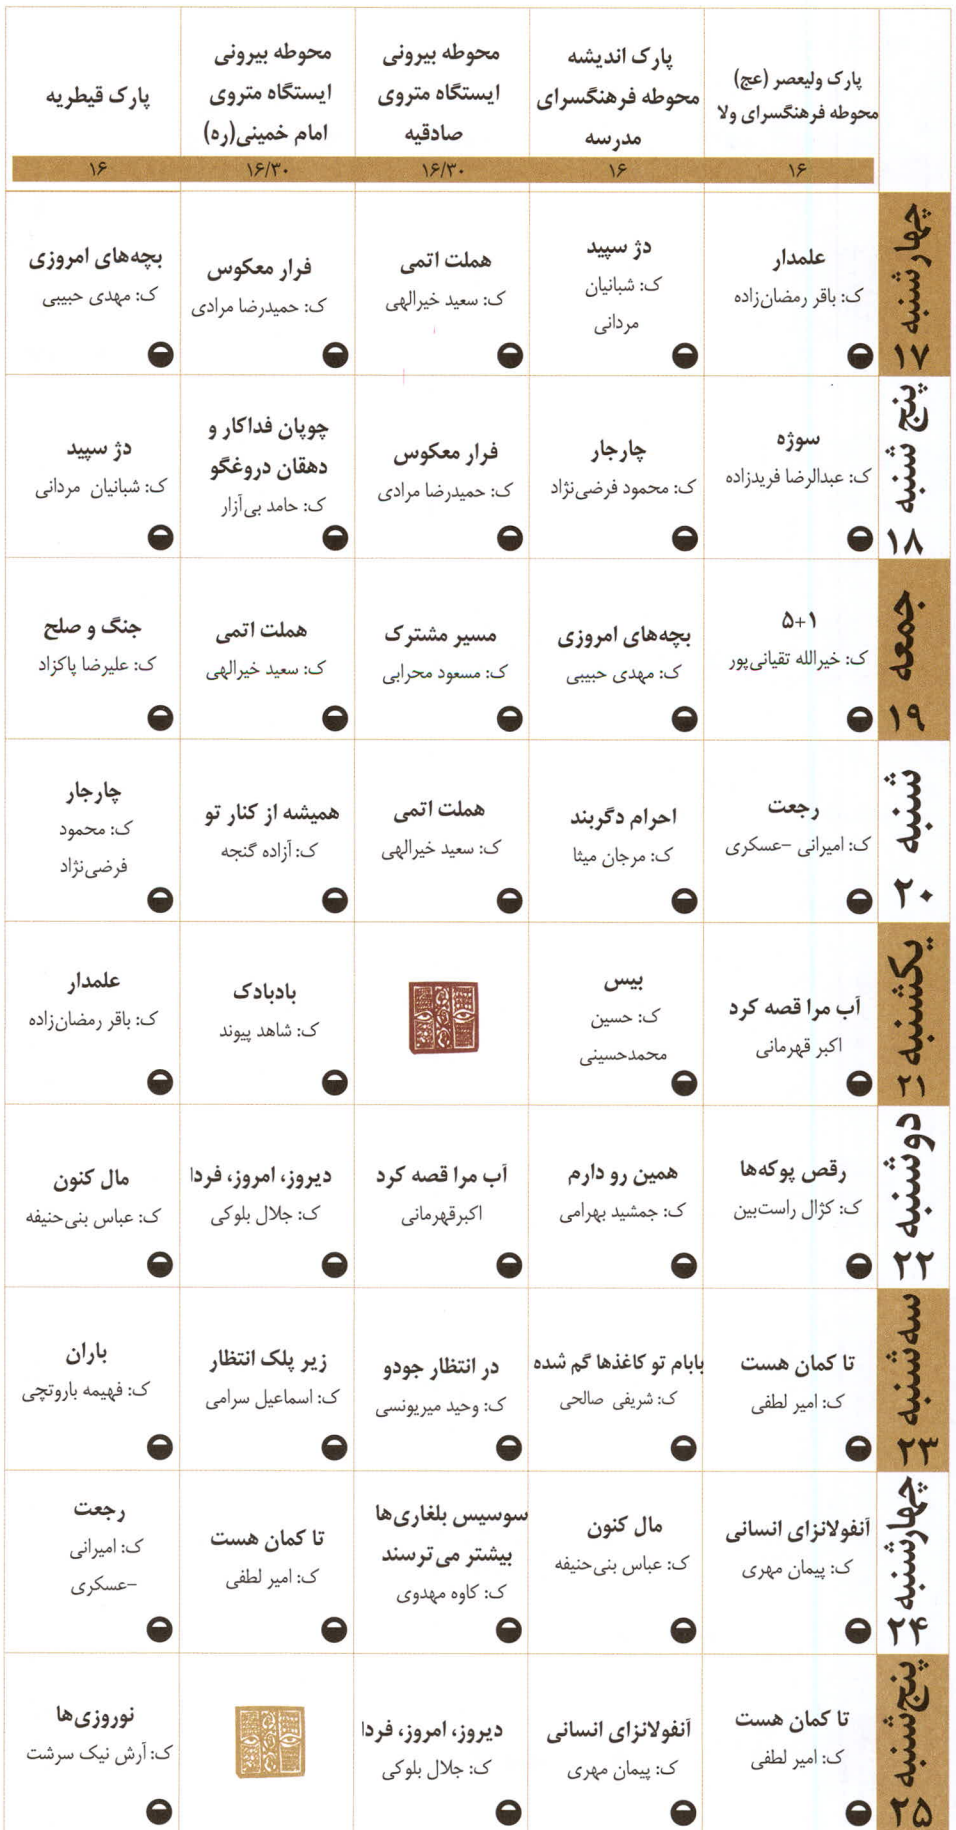 پارک ولیعصر (عج)
محوطه فرهنگسرای ولا
پارک اندیشه
محوطه فرهنگسرای
مدرسه
محوطه بیرونی
ایستگاه متروی
صادقیه
محوطه بیرونی
ایستگاه متروی
امام خمینی(ره)
پارک قیطریه
۱۶
۱۶
۱۶/۳۰
۱۶/۳۰
۱۶
چهارشنبه ۱۷
علمدار
ک: باقر رمضان‌زاده
دژ سپید
ک: شبانیان
مردانی
هملت اتمی
ک: سعید خیرالهی
فرار معکوس
ک: حمیدرضا مرادی
بچه‌های امروزی
ک: مهدی حبیبی
پنج شنبه ۱۸
سوژه
ک: عبدالرضا فریدزاده
چارجار
ک: محمود فرضی‌نژاد
فرار معکوس
ک: حمیدرضا مرادی
چوپان فداکار و
دهقان دروغگو
ک: حامد بی‌آزار
دژ سپید
ک: شبانیان مردانی
جمعه ۱۹
۵+۱
ک: خیرالله تقیانی‌پور
بچه‌های امروزی
ک: مهدی حبیبی
مسیر مشترک
ک: مسعود محرابی
هملت اتمی
ک: سعید خیرالهی
جنگ و صلح
ک: علیرضا پاکزاد
شنبه ۲۰
رجعت
ک: امیرانی –عسکری
احرام دگربند
ک: مرجان میثا
هملت اتمی
ک: سعید خیرالهی
همیشه از کنار تو
ک: آزاده گنجه
چارجار
ک: محمود
فرضی‌نژاد
یکشنبه ۲۱
آب مرا قصه کرد
اکبر قهرمانی
بیس
ک: حسین
محمدحسینی
بادبادک
ک: شاهد پیوند
علمدار
ک: باقر رمضان‌زاده
دوشنبه ۲۲
رقص پوکه‌ها
ک: کژال راست‌بین
همین رو دارم
ک: جمشید بهرامی
آب مرا قصه کرد
اکبرقهرمانی
دیروز، امروز، فردا
ک: جلال بلوکی
مال کنون
ک: عباس بنی‌حنیفه
سه‌شنبه ۲۳
تا کمان هست
ک: امیر لطفی
بابام تو کاغذها گم شده
ک: شریفی صالحی
در انتظار جودو
ک: وحید میریونسی
زیر پلک انتظار
ک: اسماعیل سرامی
باران
ک: فهیمه باروتچی
چهارشنبه ۲۴
آنفولانزای انسانی
ک: پیمان مهری
مال کنون
ک: عباس بنی‌حنیفه
سوسیس بلغاری‌ها
بیشتر می‌ترسند
ک: کاوه مهدوی
تا کمان هست
ک: امیر لطفی
رجعت
ک: امیرانی
–عسکری
پنج‌شنبه ۲۵
تا کمان هست
ک: امیر لطفی
آنفولانزای انسانی
ک: پیمان مهری
دیروز، امروز، فردا
ک: جلال بلوکی
نوروزی‌ها
ک: آرش نیک سرشت